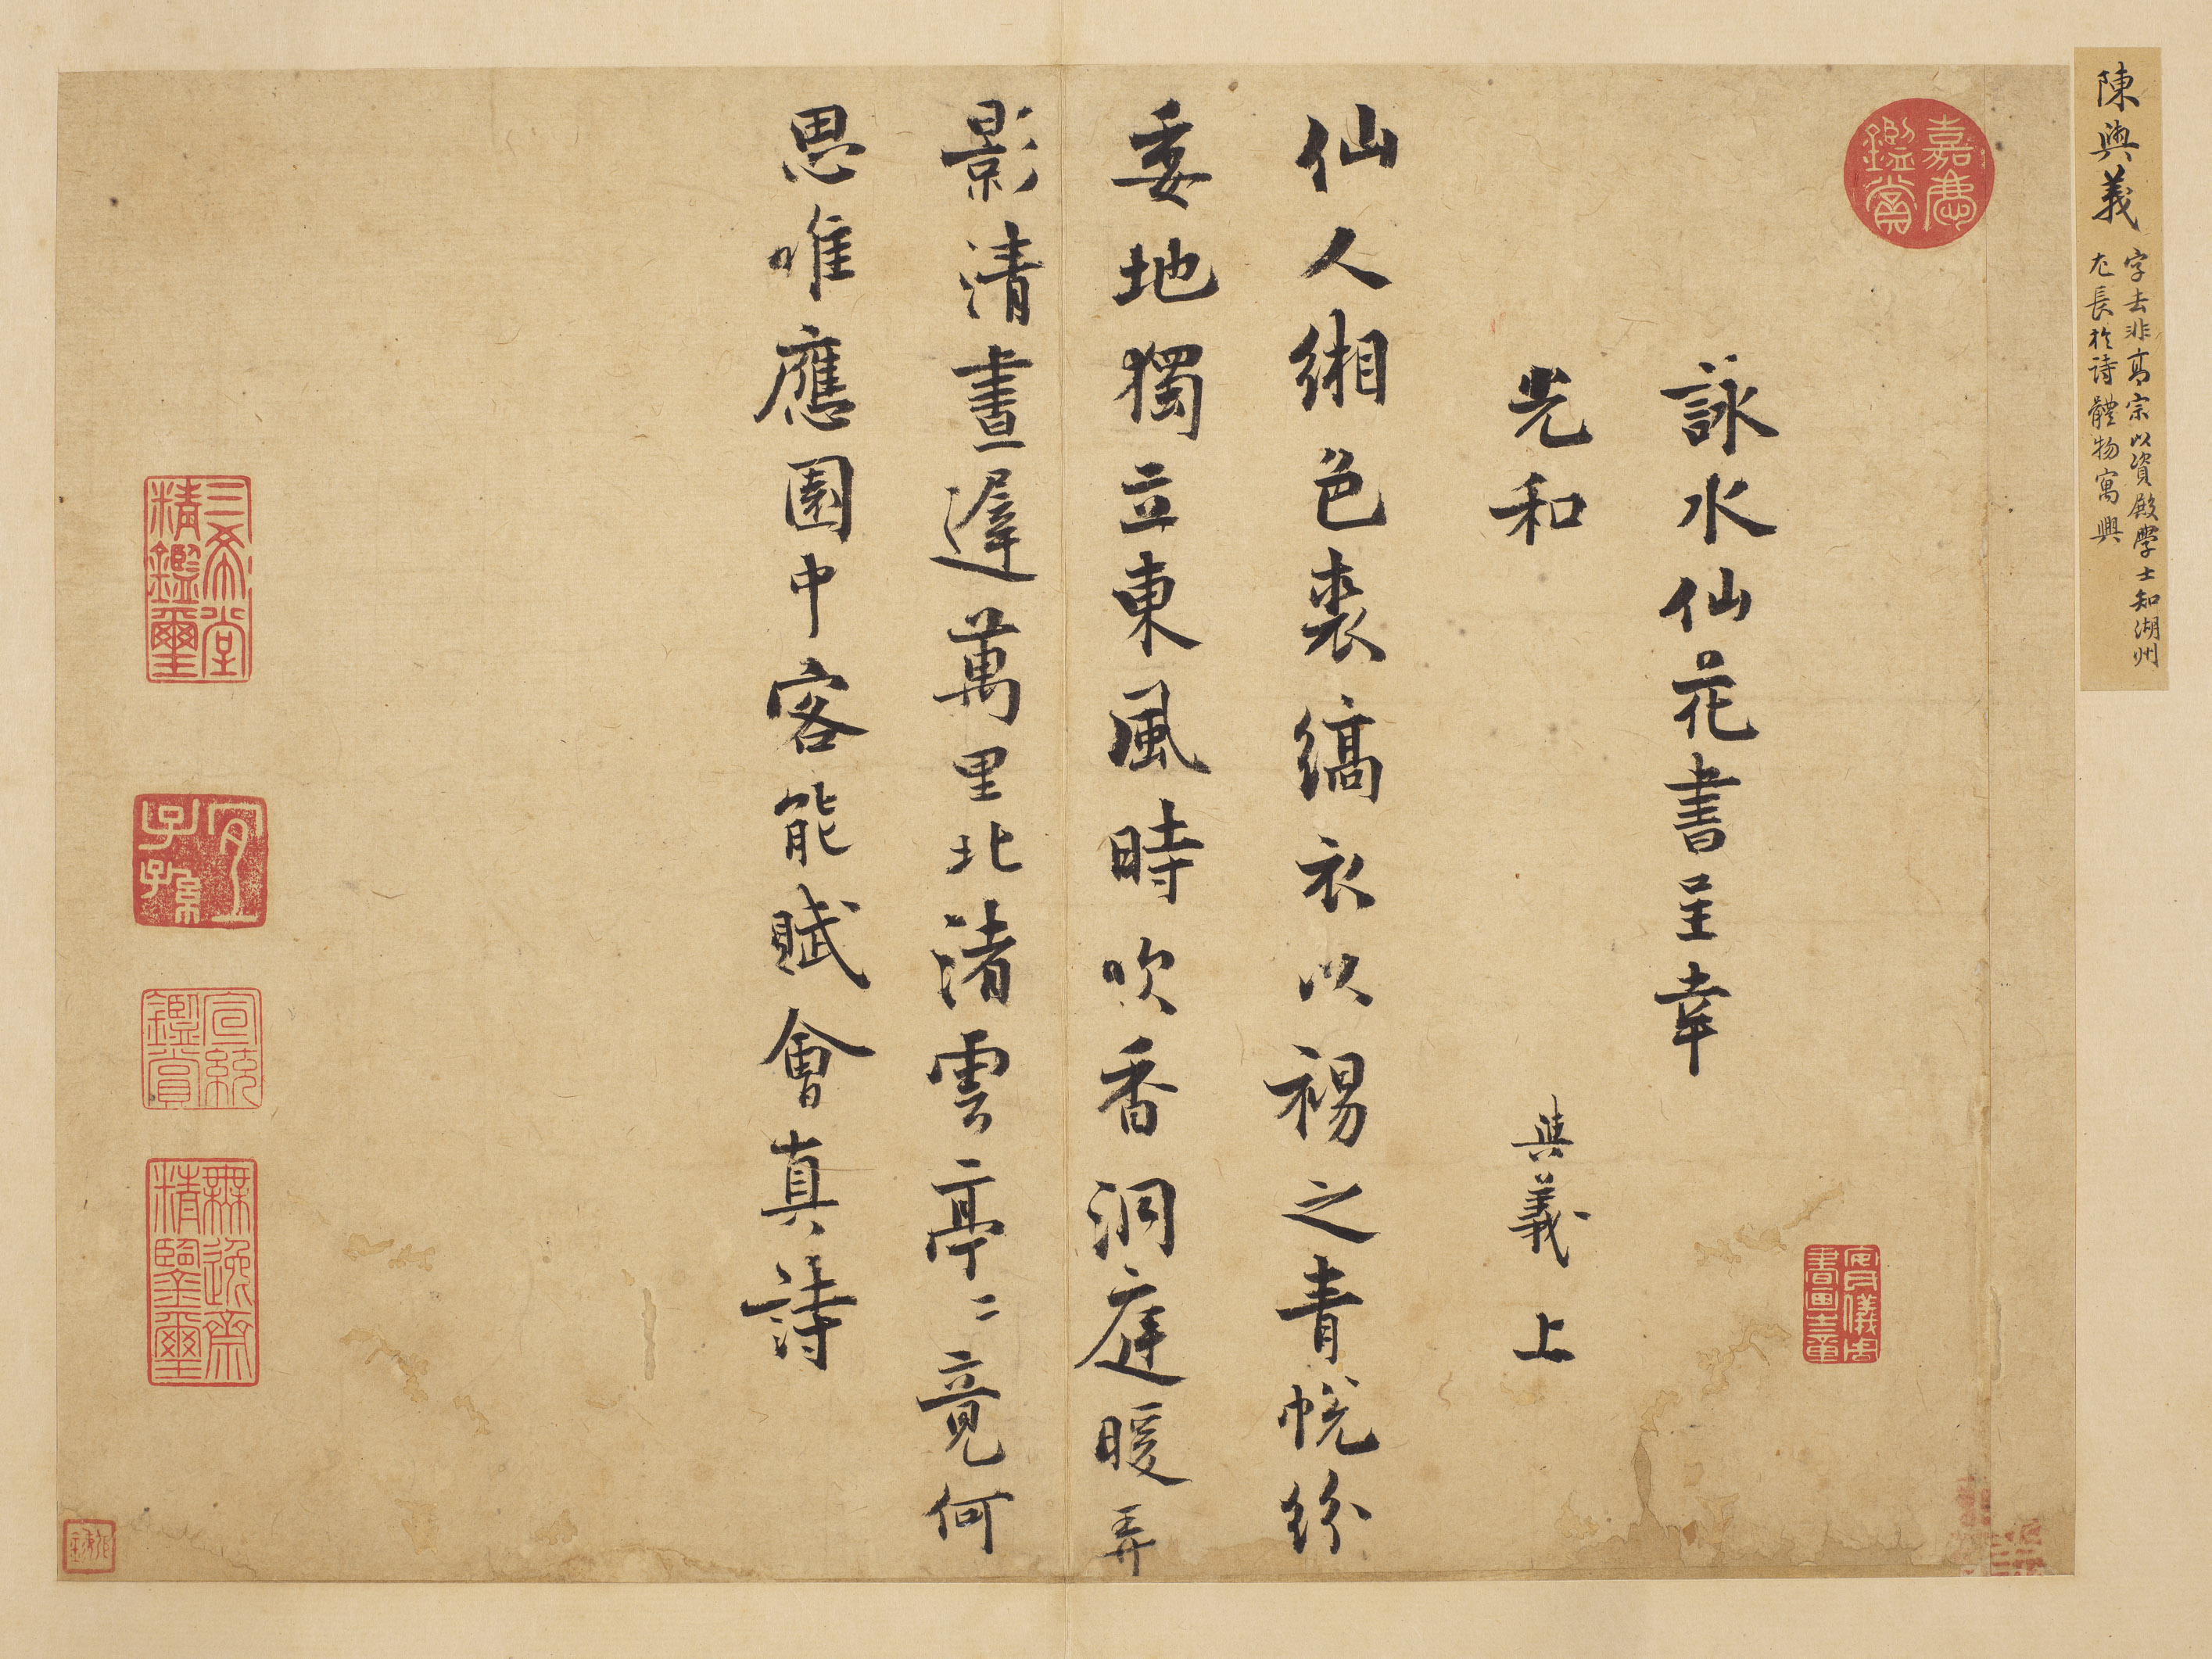 陳與義
字去非高宗以資殿學士知湖州
尤長於詩體物寓興
嘉慶鑑賞
詠水仙花書呈幸
光和
與義上
仙人緗色裘縞衣以裼之青帨紛
委地獨立東風時吹香洞庭暖弄
影清晝遲萬里北渚雲亭〻竟何
思唯應園中客能賦會真詩
安儀周書畫之章
三希堂精鑑璽
宜子孫
宣統鑑賞
無逸齋精鑒璽